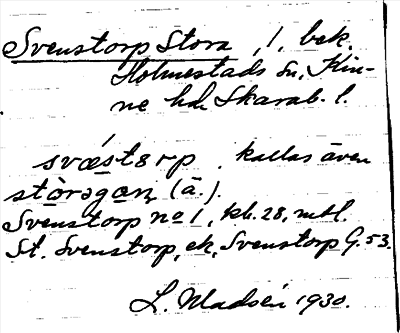 Svenstorp Stora, 1, bek.
Holmestads sn, Kin-
ne hd Skarab. l.
svǽstərp. kallas även
stòrəgan (ä.).
Svenstorp no 1, kb. 28, mtl.
St. Svenstorp, ek, Svenstorp G. 53.
L. Madsén 1930.